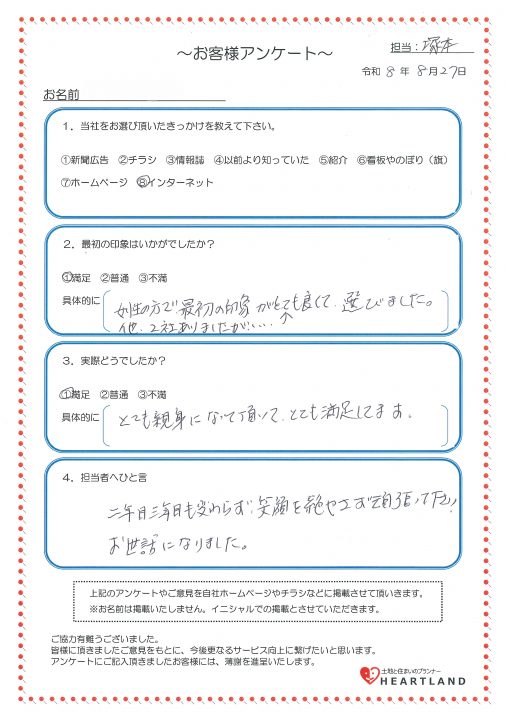 ～お客様アンケート～
担当：塚本
令和 8 年 8月27日
お名前
1．当社をお選び頂いたきっかけを教えて下さい。
①新聞広告 ②チラシ ③情報誌 ④以前より知っていた ⑤紹介 ⑥看板やのぼり（旗）
⑦ホームページ ⑧インターネット
2．最初の印象はいかがでしたか？
①満足 ②普通 ③不満
具体的に
女性の方で最初の印象がとても良くて、選びました。
他、2社ありましたが……
3．実際どうでしたか？
①満足 ②普通 ③不満
具体的に
とても親身になって頂いて、とても満足してます。
4．担当者へひと言
二年目三年目も変わらず笑顔を絶やさず頑張って下さい
お世話になりました。
上記のアンケートやご意見を自社ホームページやチラシなどに掲載させて頂いきます。
※お名前は掲載いたしません。イニシャルでの掲載とさせていただきます。
ご協力有難うございました。
皆様に頂きましたご意見をもとに、今後更なるサービス向上に繋げたいと思います。
アンケートにご記入頂きましたお客様には、薄謝を進呈いたします。
土地と住まいのプランナー
HEARTLAND